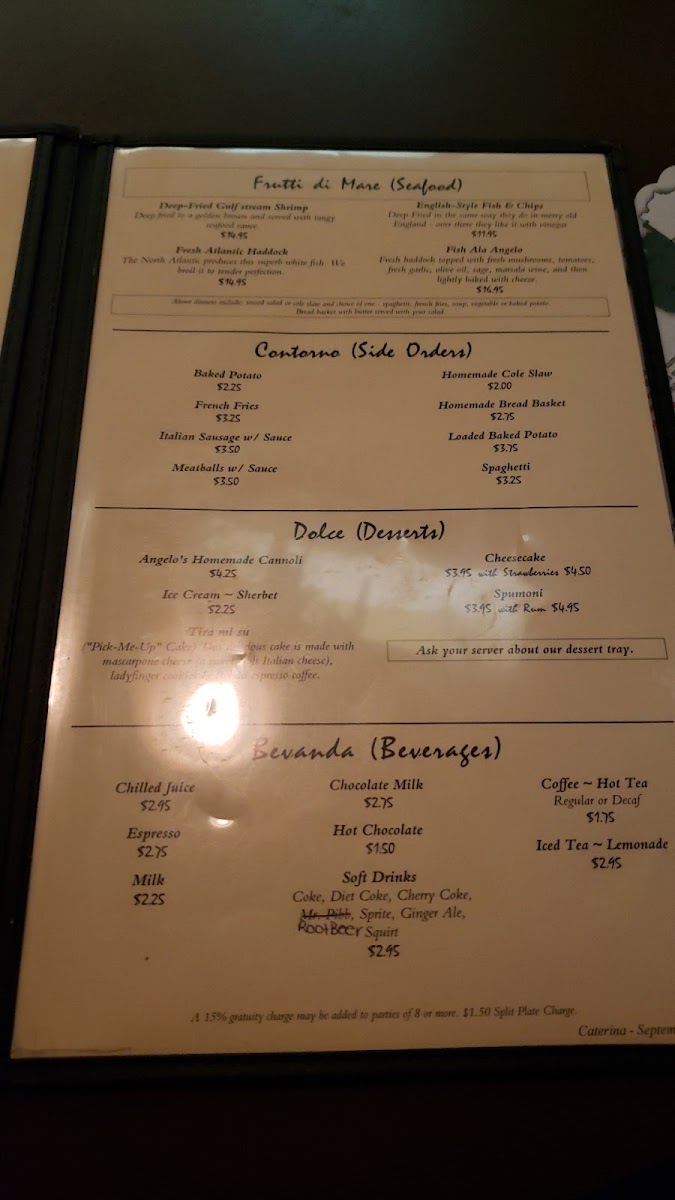 Frutti di Mare (Seafood)
Deep-Fried Gulf stream Shrimp
Deep fried to a golden brown and served with tangy
seafood sauce.
$14.95
English-Style Fish & Chips
Deep Fried in the same way they do in merry old
England - over there they like it with vinegar
$11.95
Fresh Atlantic Haddock
The North Atlantic produces this superb white fish. We
broil it to tender perfection.
$14.95
Fish Ala Angelo
Fresh haddock topped with fresh mushrooms, tomatoes,
fresh garlic, olive oil, sage, marsala wine, and then
lightly baked with cheese.
$16.95
Above dinners include: tossed salad or cole slaw and choice of one - spaghetti, french fries, soup, vegetable or baked potato.
Bread basket with butter served with your salad.
Contorno (Side Orders)
Baked Potato
$2.25
Homemade Cole Slaw
$2.00
French Fries
$3.25
Homemade Bread Basket
$2.75
Italian Sausage w/ Sauce
$3.50
Loaded Baked Potato
$3.75
Meatballs w/ Sauce
$3.50
Spaghetti
$3.25
Dolce (Desserts)
Angelo's Homemade Cannoli
$4.25
Cheesecake
$3.95 with Strawberries $4.50
Ice Cream ~ Sherbet
$2.25
Spumoni
$3.95 with Rum $4.95
Tira mi su
("Pick-Me-Up" Cake) cake is made with
mascarpone Italian cheese),
ladyfinger espresso coffee.
Ask your server about our dessert tray.
Bevanda (Beverages)
Chilled Juice
$2.95
Chocolate Milk
$2.75
Coffee ~ Hot Tea
Regular or Decaf
$1.75
Espresso
$2.75
Hot Chocolate
$1.50
Iced Tea ~ Lemonade
$2.95
Milk
$2.25
Soft Drinks
Coke, Diet Coke, Cherry Coke,
Mr. Pibb, Sprite, Ginger Ale,
RootBeer Squirt
$2.95
A 15% gratuity charge may be added to parties of 8 or more. $1.50 Split Plate Charge.
Caterina - Septem